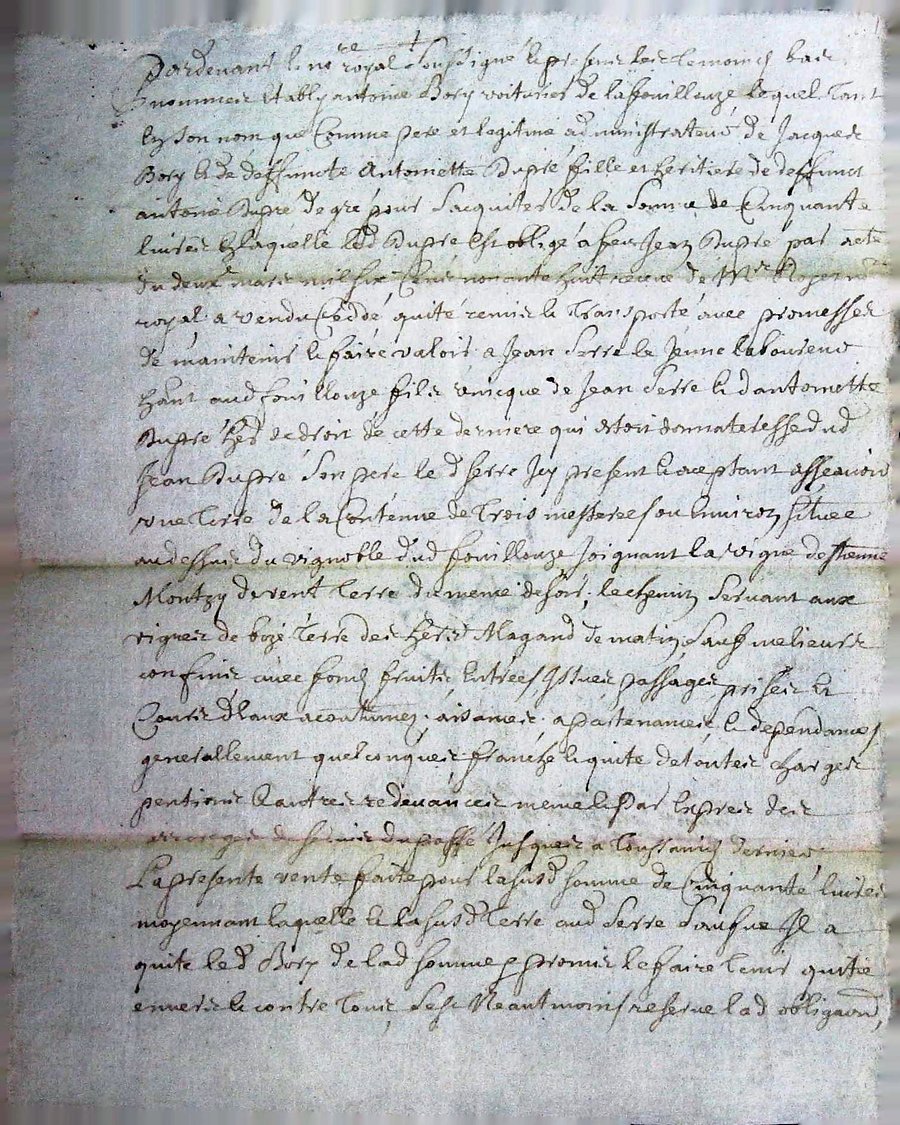 Pardevant le no.re royal soussigné et presens les temoins bas
nommes etably antoine Bory voiturier de la fouillouze lequel tant
en son nom que Comme pere et legitime administrateur de Jacques
Bory et de deffuncte Antoinette Dupré fille et heritiere de deffunct
antoine Dupré de gré pour sacquiter de la somme de Cinquante
livres En laquelle led Dupre Est obligé a feu Jean Dupre par acte
du deux mars mil six Cens nonante huit receue de Mre
royal a vendu Ceddé quité remis et Transporté avec promesses
de maintenir et faire valoir a Jean Serre le Jeune laboureur
hant aud fouillouze fils unicque de Jean Serre et d antoinette
Dupré her de droit de cette derniere qui etoit donnateresse dud
Jean Dupré son pere le d Serre Icy present et aceptant assavoir
une Terre de la Contenue de Trois mesterees ou Environ située
audessus du vignoble dud fouillouze Joignant la vigne destienne
Montzy de vent Terre du meme de soir, le chemin servant aux
vignes de boze Terre des hers Magand de matin sauf melieurs
confins avec fond fruits Entrees Issues passages prises et
Cours dEaux acoutumez, aisances, apartenances, et dependances
generallement quelconques franche et quite de toutes charges
pentions et autres redevances meme
du passé Jusques a Toussaincts dernier
La presente vente faite pour la susd somme de Cinquante livres
moyennant laquelle et la susd Terre aud Serre Il a
quite led Bory de lad somme promis le faire tenir quitte
envers et contre tous, sest Neantmoins reserve lad